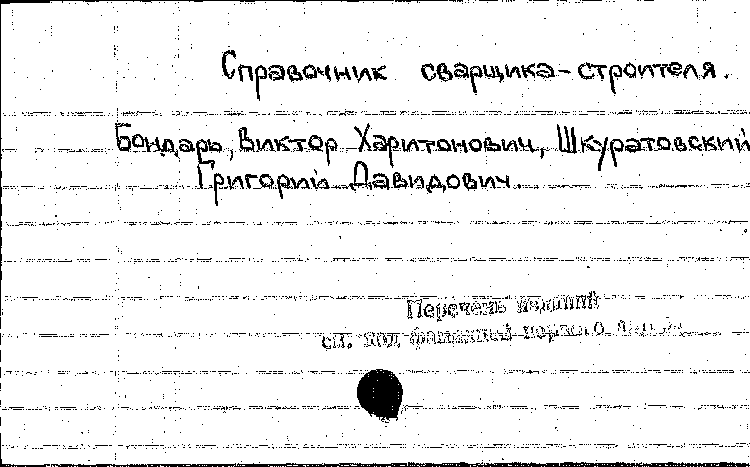 Справочник сварщика-строителя.
Бондарь, Виктор Харитонович, Шкуратовский
Григорий Давидович.
Перечень изданий
см. под фамилией первого